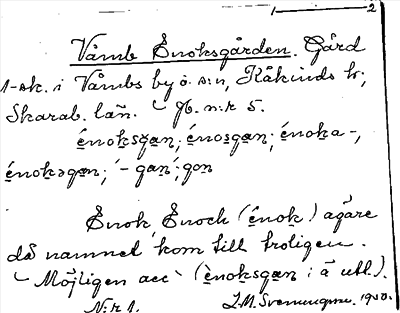 1 — 2
Våmb Enoksgården. Gård
1-sk. i Våmbs by o. s:n, Kåkinds hr,
Skarab. län. Jb. n:r 5.
énoksgan; énosgan; énoka-,
énokəgan; ´- gan; gon
Enok, Enoch (énok) ägare
då namnet kom till troligen.
Möjligen acc ` (ènoksgan i ä utt.).
N:r 1. J.M. 1930.